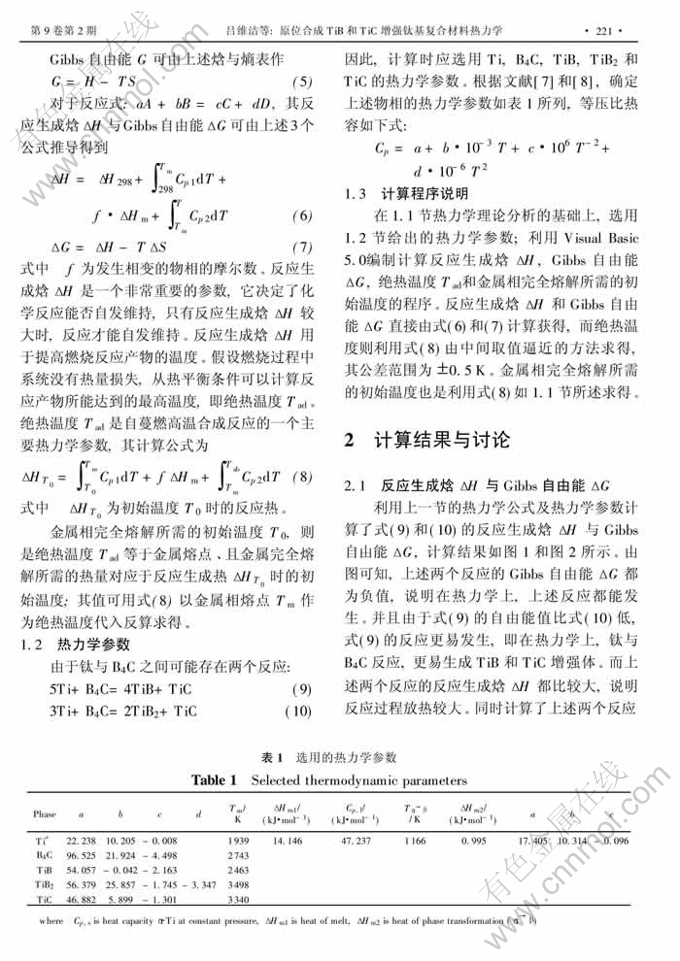 第 9 卷第 2 期 吕维洁等: 原位合成 TiB 和 TiC 增强钛基复合材料热力学 · 221 ·
Gibbs 自由能 G 可由上述焓与熵表作
G = H − TS (5)
对于反应式: aA + bB = cC + dD, 其反
应生成焓 ΔH 与 Gibbs 自由能 ΔG 可由上述 3 个
公式推导得到
ΔH = ΔH 298 + ∫298 Tm Cp1dT +
f · ΔH m + ∫Tm T Cp2dT (6)
ΔG = ΔH − T ΔS (7)
式中 f 为发生相变的物相的摩尔数。反应生
成焓 ΔH 是一个非常重要的参数, 它决定了化
学反应能否自发维持, 只有反应生成焓 ΔH 较
大时, 反应才能自发维持。反应生成焓 ΔH 用
于提高燃烧反应产物的温度。假设燃烧过程中
系统没有热量损失, 从热平衡条件可以计算反
应产物所能达到的最高温度, 即绝热温度 T ad。
绝热温度 T ad 是自蔓燃高温合成反应的一个主
要热力学参数, 其计算公式为
ΔH T0 = ∫T0 Tm Cp1dT + f ΔH m + ∫Tm Tab Cp2dT (8)
式中 ΔH T0 为初始温度 T 0 时的反应热。
金属相完全熔解所需的初始温度 T 0, 则
是绝热温度 T ad 等于金属熔点、且金属完全熔
解所需的热量对应于反应生成热 ΔH T0 时的初
始温度; 其值可用式(8) 以金属相熔点 T m 作
为绝热温度代入反算求得。
1. 2 热力学参数
由于钛与 B4C 之间可能存在两个反应:
5Ti+ B4C= 4TiB+ TiC (9)
3Ti+ B4C= 2TiB2+ TiC (10)
因此, 计算时应选用 Ti, B4C, TiB, TiB2 和
TiC 的热力学参数。根据文献[ 7] 和[ 8] , 确定
上述物相的热力学参数如表 1 所列, 等压比热
容如下式:
Cp = a + b · 10− 3 T + c · 106 T− 2 +
d · 10− 6 T2
1. 3 计算程序说明
在 1. 1 节热力学理论分析的基础上, 选用
1. 2 节给出的热力学参数; 利用 Visual Basic
5. 0编制计算反应生成焓 ΔH , Gibbs 自由能
ΔG , 绝热温度 T ad和金属相完全熔解所需的初
始温度的程序。反应生成焓 ΔH 和 Gibbs 自由
能 ΔG 直接由式(6) 和(7) 计算获得, 而绝热温
度则利用式(8) 由中间取值逼近的方法求得,
其公差范围为 ±0. 5 K 。金属相完全熔解所需
的初始温度也是利用式(8) 如 1. 1 节所述求得。
2 计算结果与讨论
2. 1 反应生成焓 ΔH 与 Gibbs 自由能 ΔG
利用上一节的热力学公式及热力学参数计
算了式(9) 和(10) 的反应生成焓 ΔH 与 Gibbs
自由能 ΔG , 计算结果如图 1 和图 2 所示。由
图可知, 上述两个反应的 Gibbs 自由能 ΔG 都
为负值, 说明在热力学上, 上述反应都能发
生。并且由于式(9) 的自由能值比式(10) 低,
式(9) 的反应更易发生, 即在热力学上, 钛与
B4C 反应, 更易生成 TiB 和 TiC 增强体。而上
述两个反应的反应生成焓 ΔH 都比较大, 说明
反应过程放热较大。同时计算了上述两个反应
表 1 选用的热力学参数
Table 1 Selected thermodynamic parameters
Phase a b c d T m/ K ΔH m1/ (kJ·mol− 1) Cp, l/ (kJ·mol− 1) T α− β / K ΔH m2/ (kJ·mol− 1) a b c
Ti* 22. 238 10. 205 − 0. 008 1 939 14. 146 47. 237 1 166 0. 995 17. 405 10. 314 − 0. 096
B4C 96. 525 21. 924 − 4. 498 2 743
TiB 54. 057 − 0. 042 − 2. 163 2 463
TiB2 56. 379 25. 857 − 1. 745 − 3. 347 3 498
TiC 46. 882 5. 899 − 1. 301 3 340
where Cp, s is heat capacity α-Ti at constant pressure, ΔH m1 is heat of melt, ΔH m2 is heat of phase transformation ( α− β)
有色金属在线
www.cnnmol.com
有色金属在线
www.cnnmol.com